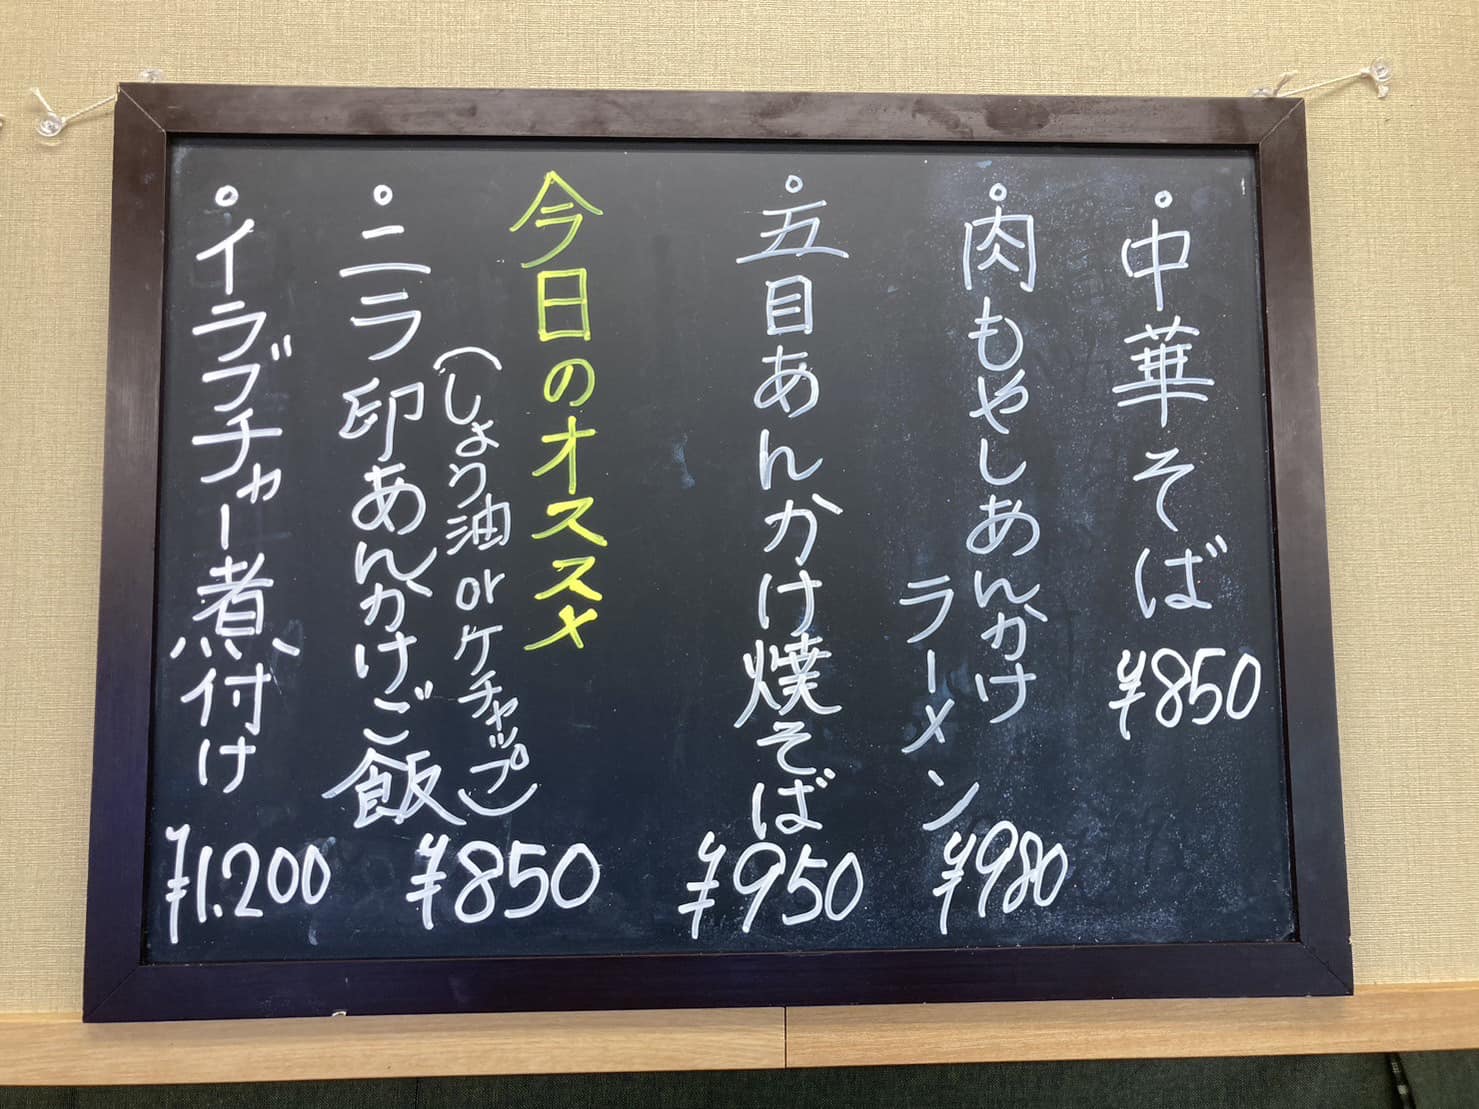 中華そば ¥850
肉もやしあんかけ
ラーメン ¥980
五目あんかけ焼そば ¥950
今日のオススメ
(しょう油 or ケチャップ)
ニラ印あんかけご飯 ¥850
イラブチャー煮付け ¥1.200